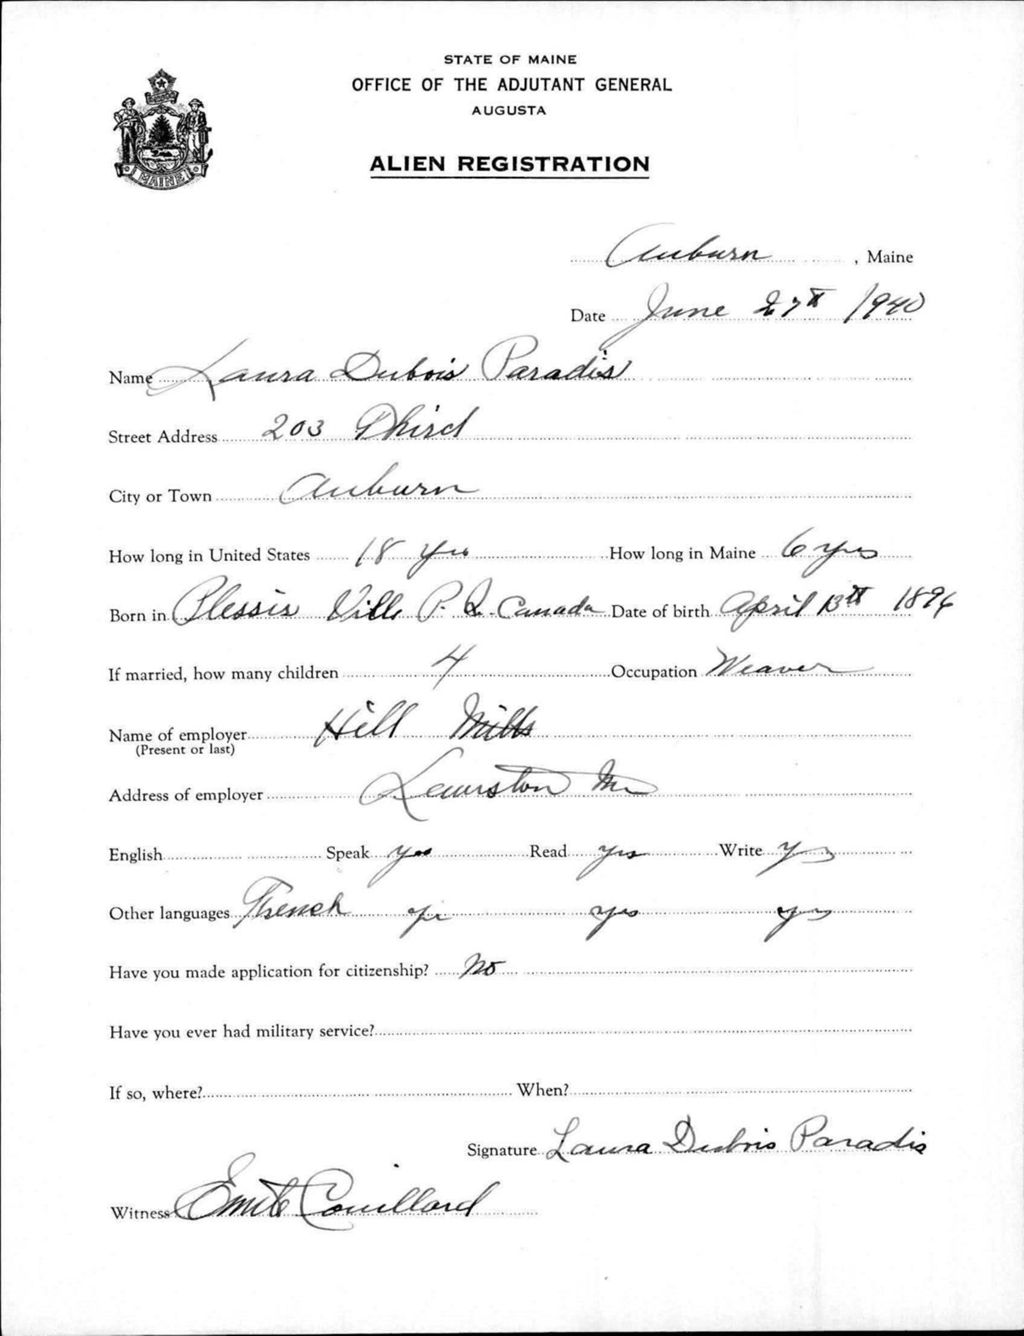 STATE OF MAINE
OFFICE OF THE ADJUTANT GENERAL
AUGUSTA
ALIEN REGISTRATION
MAINE
Auburn, Maine
Date June 27th 1940
Name Laura Dubois Paradis
Street Address 203 Third
City or Town Auburn
How long in United States 18 yrs How long in Maine 6 yrs
Born in Plessis Ville P.Q. Canada Date of birth April 13th 1896
If married, how many children 4 Occupation Weaver
Name of employer Hill Mills
(Present or last)
Address of employer Lewiston Me
English Speak yes Read yes Write yes
Other languages French yes yes yes
Have you made application for citizenship? No
Have you ever had military service?
If so, where? When?
Signature Laura Dubois Paradis
Witness Emile Couillard